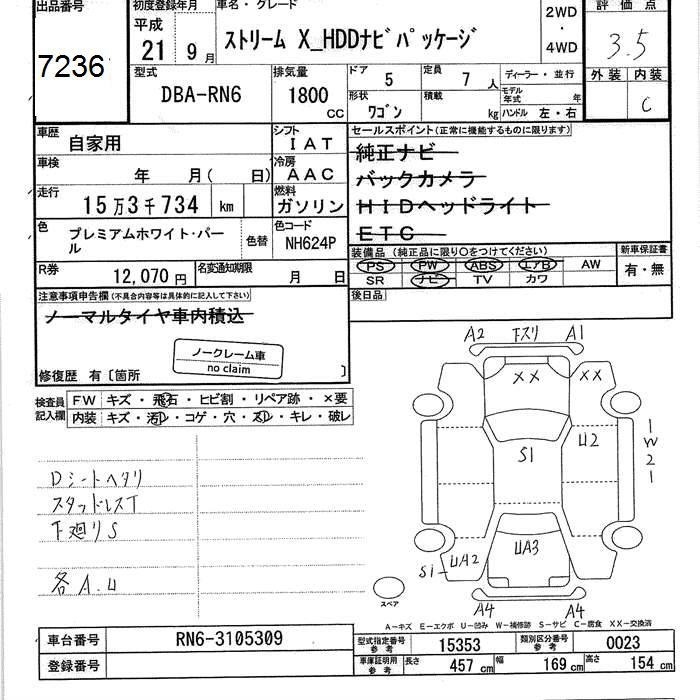 出品番号
7236
初度登録年月
平成
21年9月
車名・グレード
ストリーム X_HDDナビパッケージ
2WD
・
4WD
評価点
3.5
型式
DBA-RN6
排気量
1800 CC
ドア 5
定員 7人
ディーラー・並行
形状
ワゴン
積載 kg
モデル年式 年
ハンドル 左・右
外装 内装
C
車歴
自家用
シフト
IAT
車検
年 月( 日)
冷房
AAC
走行
15万3千734 km
燃料
ガソリン
色
プレミアムホワイト・パール
色替
色コード
NH624P
R券
12,070円
名変通知期限
月 日
セールスポイント(正常に機能するものに限ります)
純正ナビ
バックカメラ
HIDヘッドライト
ETC
装備品 (純正品に限り○をつけてください)
PS PW ABS エアB AW
SR ナビ TV カワ
新車保証書
有・無
後日品
注意事項申告欄(不具合内容等は具体的に記入して下さい)
ノーマルタイヤ車内積込
ノークレーム車
no claim
修復歴 有〔箇所 〕
検査員記入欄
FW キズ・飛石・ヒビ割・リペア跡・×要
内装 キズ・汚れ・コゲ・穴・スレ・キレ・破レ
Dシートヘタリ
スタッドレスT
下廻りS
各A.U
A2 下スリ A1
XX XX
S1 U2
W2
1
UA3
UA2
S1
スペア
A4 A4
A-キズ E-エクボ U-凹み W-補修跡 S-サビ C-腐食 XX-交換済
車台番号
RN6-3105309
登録番号
型式指定番号 参考
15353
類別区分番号 参考
0023
車庫証明用 参考
長さ 457cm
幅 169cm
高さ 154cm